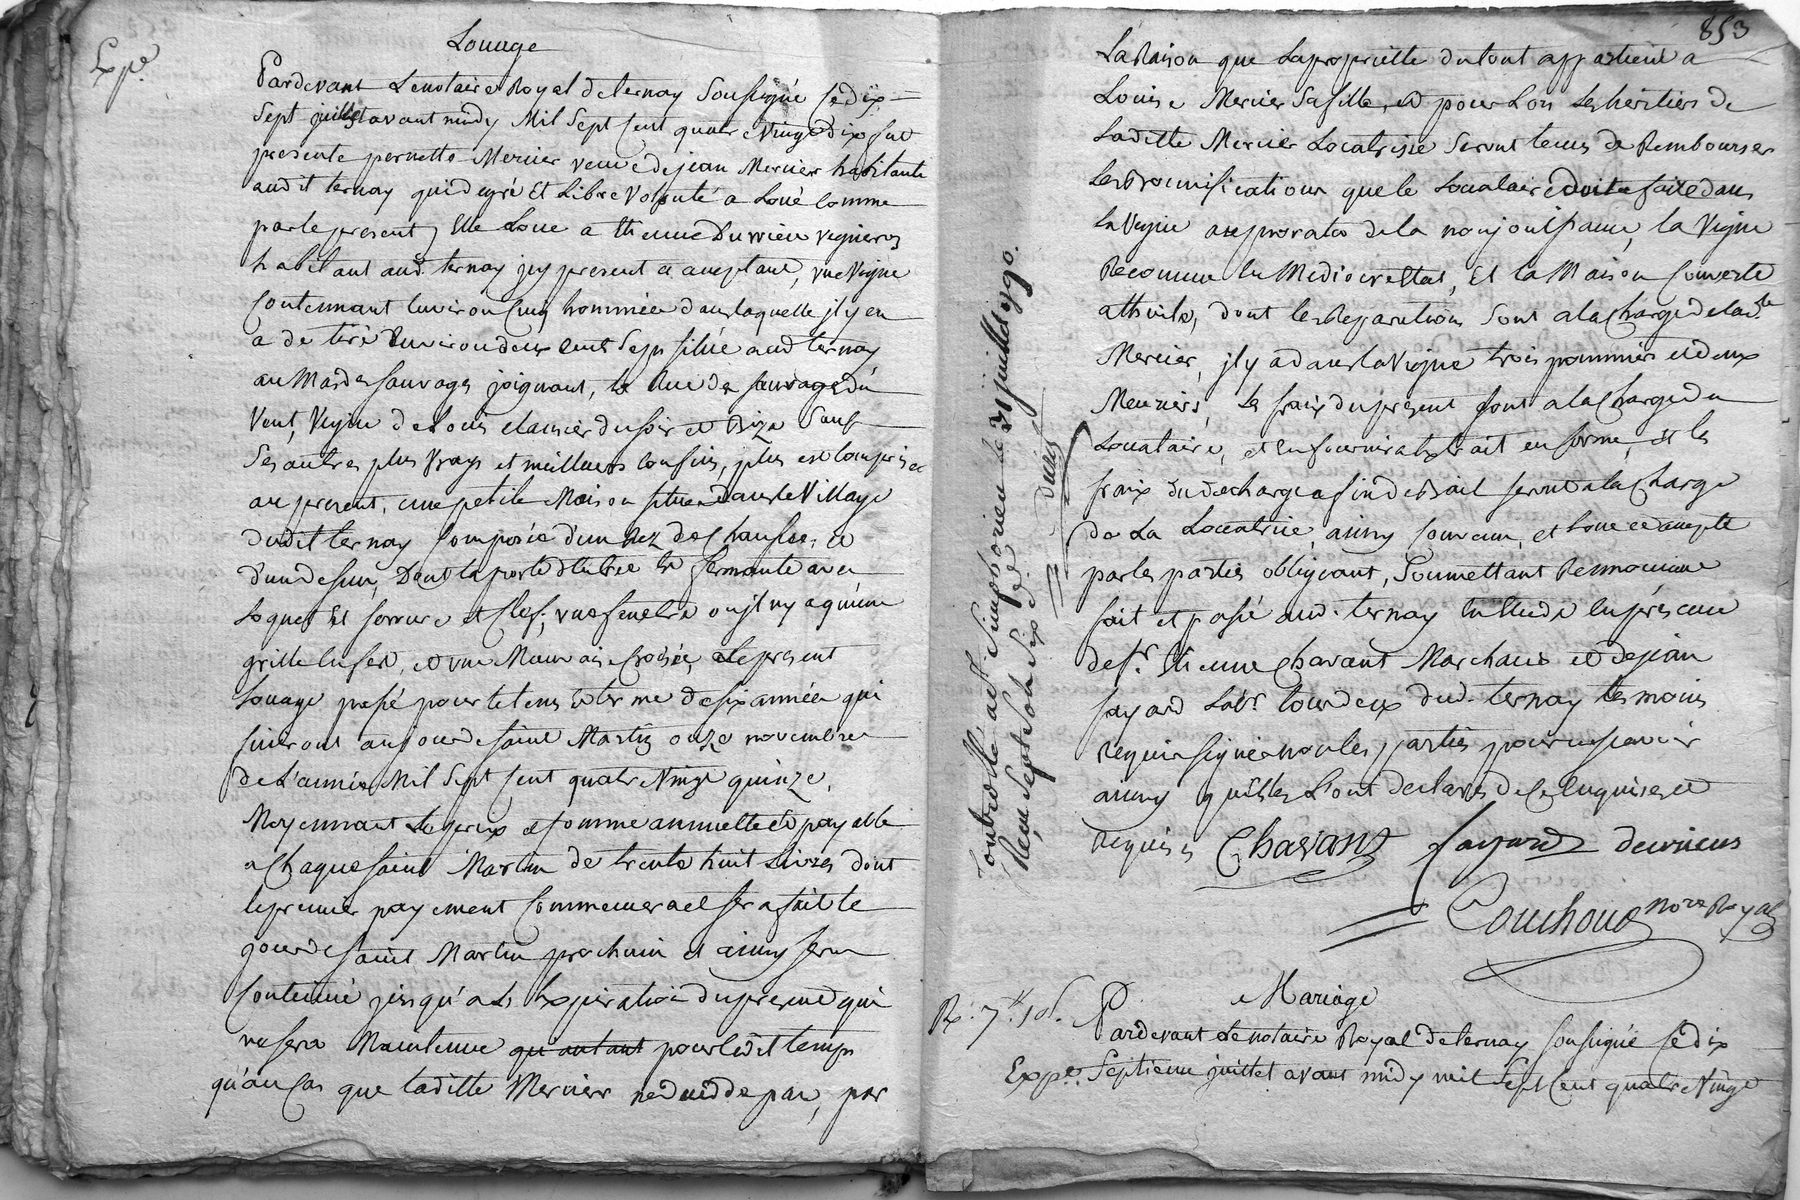 Louage
Expé
Pardevant Le notaire Royal de ternay Soussigné Ce dix
Sept juillet avant midy Mil Sept Cent quatre Vingt dix fut
presente pernette Mercier veuve de jean Mercier habitante
audit ternay qui de gré Et Libre Volonté a Loué Comme
par le present, Elle Loue a Etienne Durrieu vigneron
habitant aud. ternay jcy present et aceptant, une Vigne
Contennant Environ Cinq hommées dans laquelle jl y en
a de tiré Environ deux Cents Seps située aud ternay
au Mas de Sauvages joignant, la Rue de Sauvage du
Vent, Vigne de Louis Mercier du soir et Bize Sauf
Ses autres plus Vrays et meilleurs Confins, plus est Compris
au present, une petite Maison située dans le Village
dudit ternay Composée d'un Rez de Chaussée, et
d'un dessus, Dont la porte d'Entrée Est fermante avec
Loquet Et Serrure et Clef, une fenetre ou jl ny a qu'une
grille En fer, et une Mauvaise Croisée, Le present
Louage passé pour le tems Et terme de six années qui
finiront au jour de saint Martin onze novembre
de L'année Mil Sept Cent quatre Vingt quinze,
Moyennant Le prix et somme annuelle Et payable
a Chaque saint Martin de trente huit Livres dont
le premier payement Commencera et se fera fait le
jour de saint Martin prochain et ainsy sera
Continué jusqu'a L'Expiration du present qui
ne sera Maintenue qu'autant pour ledit temps
qu'au Cas que laditte Mercier ne decede pas, par
853
La Raison que La proprietté du tout appartient a
Louise Mercier Sa fille, et pour Lors Les heritiers de
Laditte Mercier Locatrisse Seront tenus de Rembourser
Les Bonnifications que le Locataire doit faite dans
La Vigne au prorata de la non jouissance, la Vigne
Reconnue En Mediocre Etat, Et la Maison Couverte
a thuile, dont les Reparations Sont a la Charge de lad.te
Mercier, jl y a dans la Vigne trois pommiers et deux
Meuriers, Les fraix du present sont a la Charge du
Locataire, et En fournira Extrait en forme, et les
fraix du decharge a fin de Bail seront a la Charge
de La Locatrice, ainsy Convenu, et Loué et accepté
par les parties obligeant, Soumettant Renonceant
fait et passé aud. ternay En Etude En présence
de Sr. Etienne Chavant Marchand et de jean
fayard Labr. tous deux dud. ternay temoins
requis signés non les parties pour ne sçavoir
ainsy qu'elles L'ont declaré de Ce Enquises et
requises Chavant fayard durrieus
Couchoud No.re Royal
Controllé a St. Simphorien le 31 juillet 1790.
Reçu Sept Sols Six d.
Mariage
R. 7.# 10s.
Pardevant Le notaire Royal de ternay soussigné Ce dix
Expé. Septieme juillet avant midy mil Sept Cent quatre Vingt